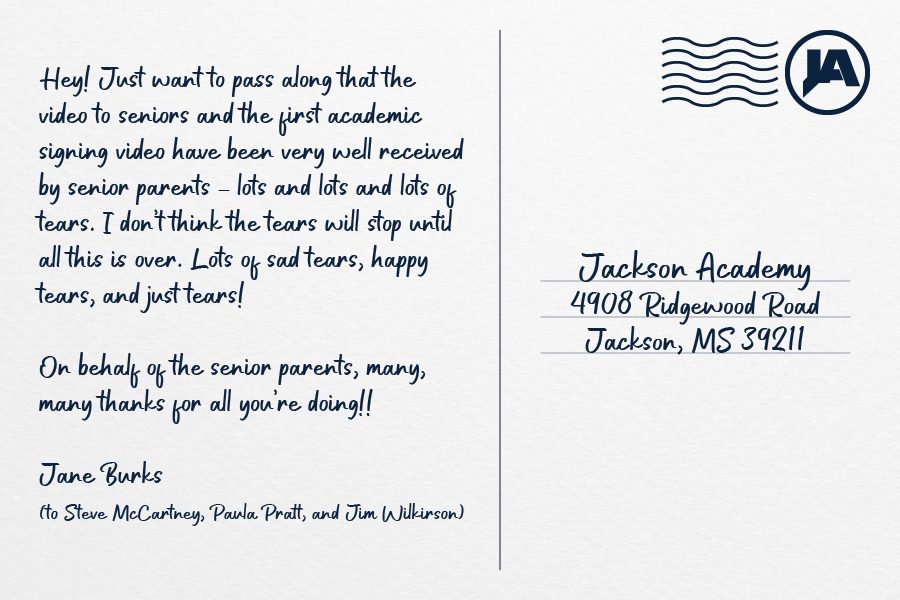 Hey! Just want to pass along that the
video to seniors and the first academic
signing video have been very well received
by senior parents – lots and lots and lots of
tears. I don't think the tears will stop until
all this is over. Lots of sad tears, happy
tears, and just tears!
On behalf of the senior parents, many,
many thanks for all you're doing!!
Jane Burks
(to Steve McCartney, Paula Pratt, and Jim Wilkirson)
JA
Jackson Academy
4908 Ridgewood Road
Jackson, MS 39211